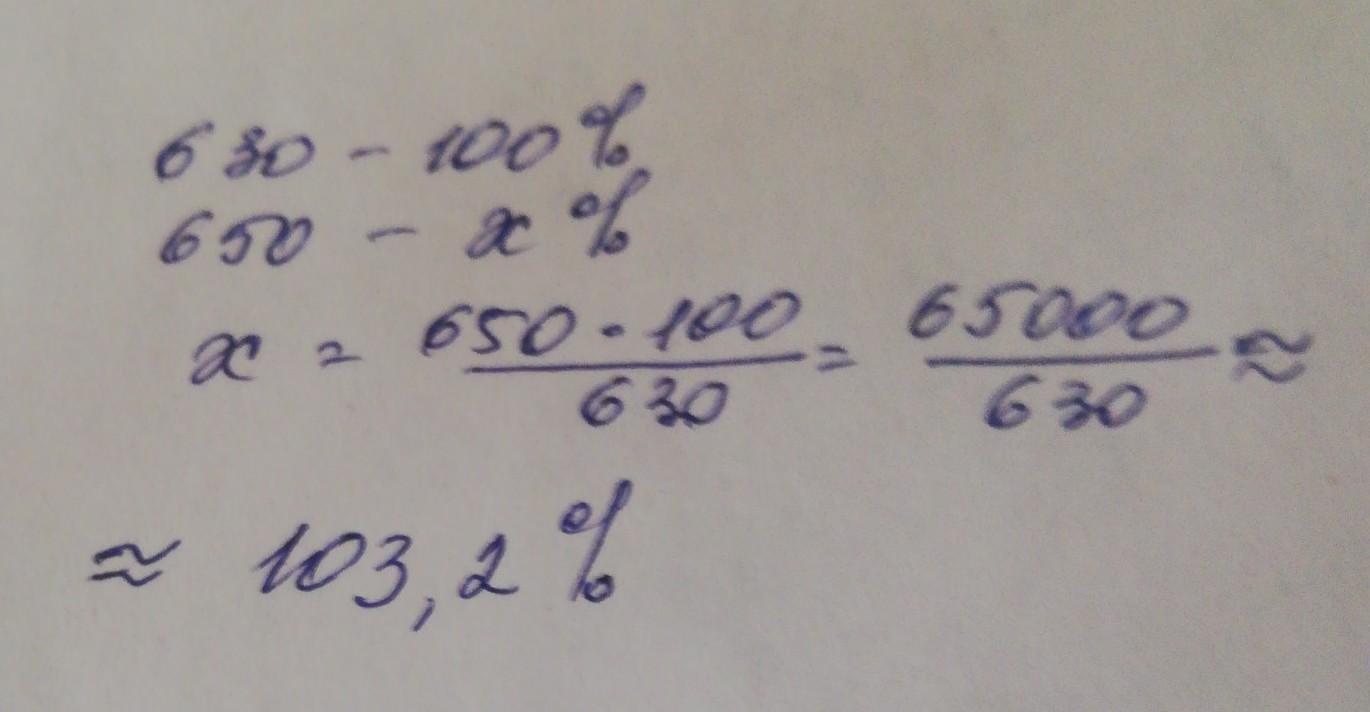 630 - 100%
650 - x%
x = 650 · 100 / 630 = 65000 / 630 ≈
≈ 103,2%